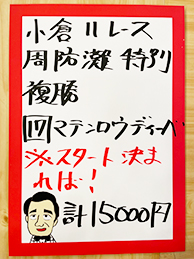 小倉11レース
周防灘特別
複勝
17マテンロウディーバ
※スタート決ま
れば!
計15000円